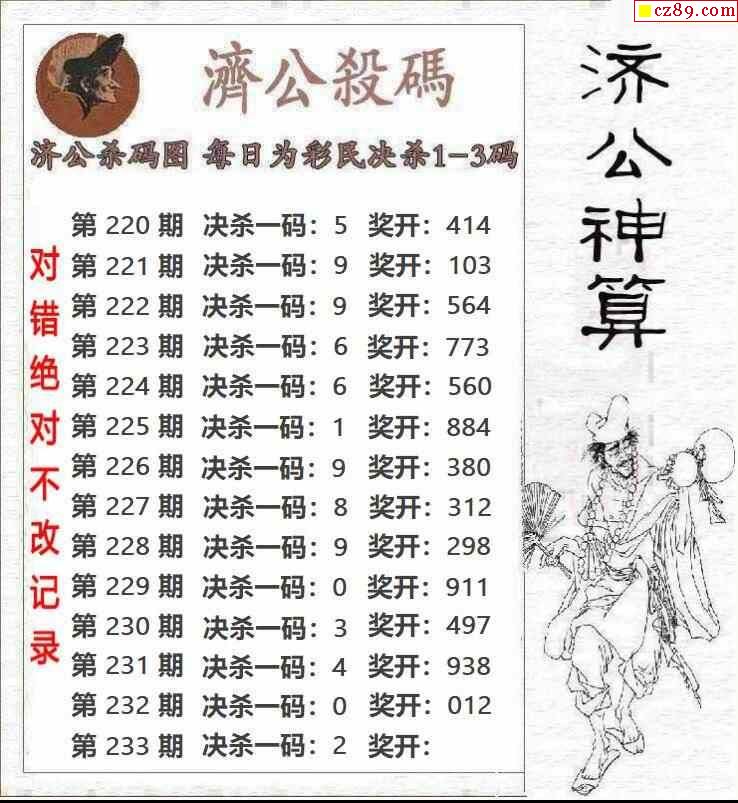 cz89.com
濟公殺碼
济公杀码图 每日为彩民决杀1-3码
第 220 期 决杀一码：5 奖开：414
第 221 期 决杀一码：9 奖开：103
第 222 期 决杀一码：9 奖开：564
第 223 期 决杀一码：6 奖开：773
第 224 期 决杀一码：6 奖开：560
第 225 期 决杀一码：1 奖开：884
第 226 期 决杀一码：9 奖开：380
第 227 期 决杀一码：8 奖开：312
第 228 期 决杀一码：9 奖开：298
第 229 期 决杀一码：0 奖开：911
第 230 期 决杀一码：3 奖开：497
第 231 期 决杀一码：4 奖开：938
第 232 期 决杀一码：0 奖开：012
第 233 期 决杀一码：2 奖开：
对错绝对不改记录
济公神算